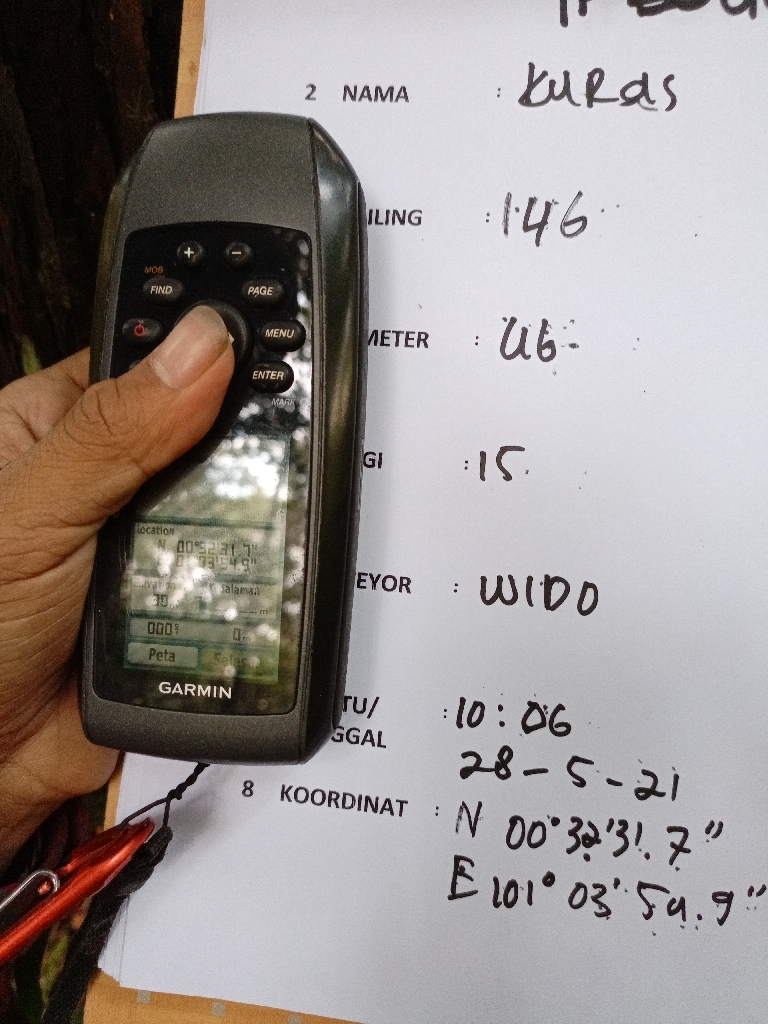 2 NAMA : KURAS
ILING : 146
METER : 46
GI : 15
EYOR : WIDO
TU/ : 10:06
GGAL 28-5-21
8 KOORDINAT : N 00°32'31.7"
E 101° 03' 54.9"
+ -
MOB
FIND PAGE
MENU
ENTER
MARK
Location
N 00°32'31.7"
03'54.9"
000°
0m
Peta
GARMIN